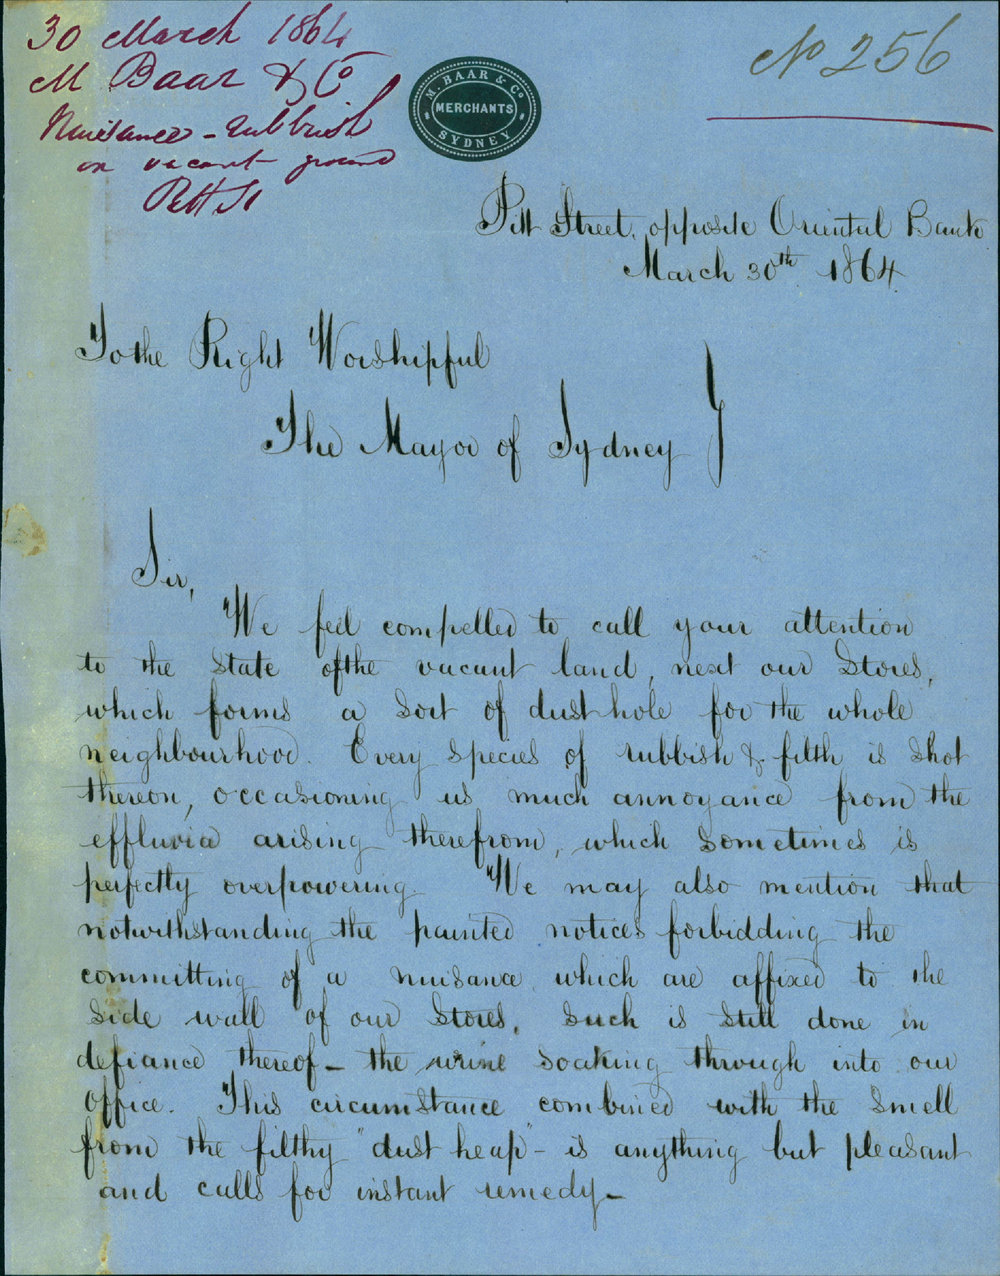 30 March 1864
M Baar & Co
Nuisance - rubbish
on vacant ground
Pitt St
M. BAAR & Co
MERCHANTS
SYDNEY
No 256
Pitt Street, opposite Oriental Bank
March 30th 1864.
To the Right Worshipful
The Mayor of Sydney
Sir,
We feel compelled to call your attention
to the state of the vacant land, next our Stores,
which forms a sort of dust hole for the whole
neighbourhood. Every species of rubbish & filth is shot
thereon, occasioning us much annoyance from the
effluvia arising therefrom, which sometimes is
perfectly overpowering. We may also mention that
notwithstanding the painted notices forbidding the
committing of a nuisance which are affixed to the
side wall of our Stores, such is still done in
defiance thereof - the urine soaking through into our
office. This circumstance combined with the smell
from the filthy "dust heap" - is anything but pleasant
and calls for instant remedy -